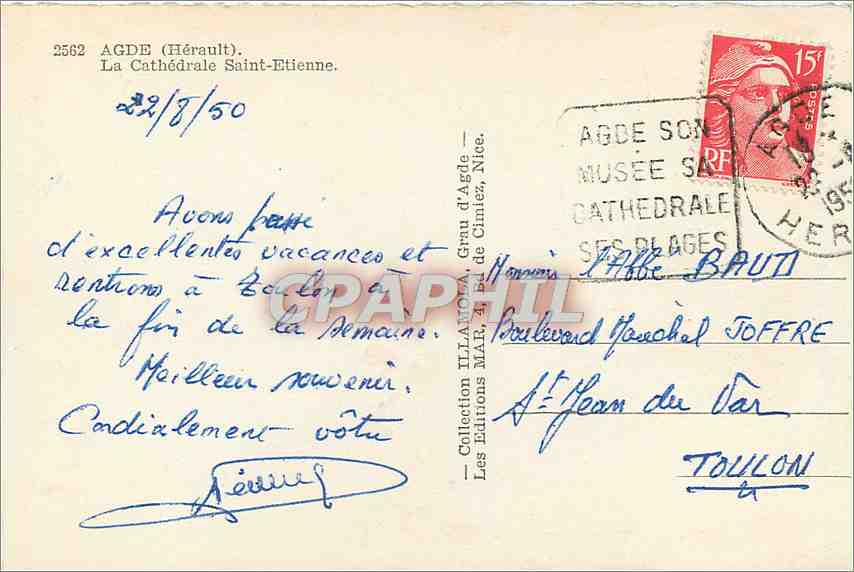 2562 AGDE (Hérault).
La Cathédrale Saint-Etienne.
22/8/50
Avons passé
d'excellentes vacances et
rentrons à Toulon à
la fin de la semaine.
Meilleur souvenir.
Cordialement vôtre
— Collection ILLAMOLA, Grau d'Agde —
Les Editions MAR, 4, Bd de Cimiez, Nice.
15F
POSTES
RF
AGDE SON
MUSÉE SA
CATHEDRALE
SES PLAGES
HER
Monsieur l'Abbé BAUTI
Boulevard Maréchal JOFFRE
St Jean du Var
TOULON
CPAPHIL